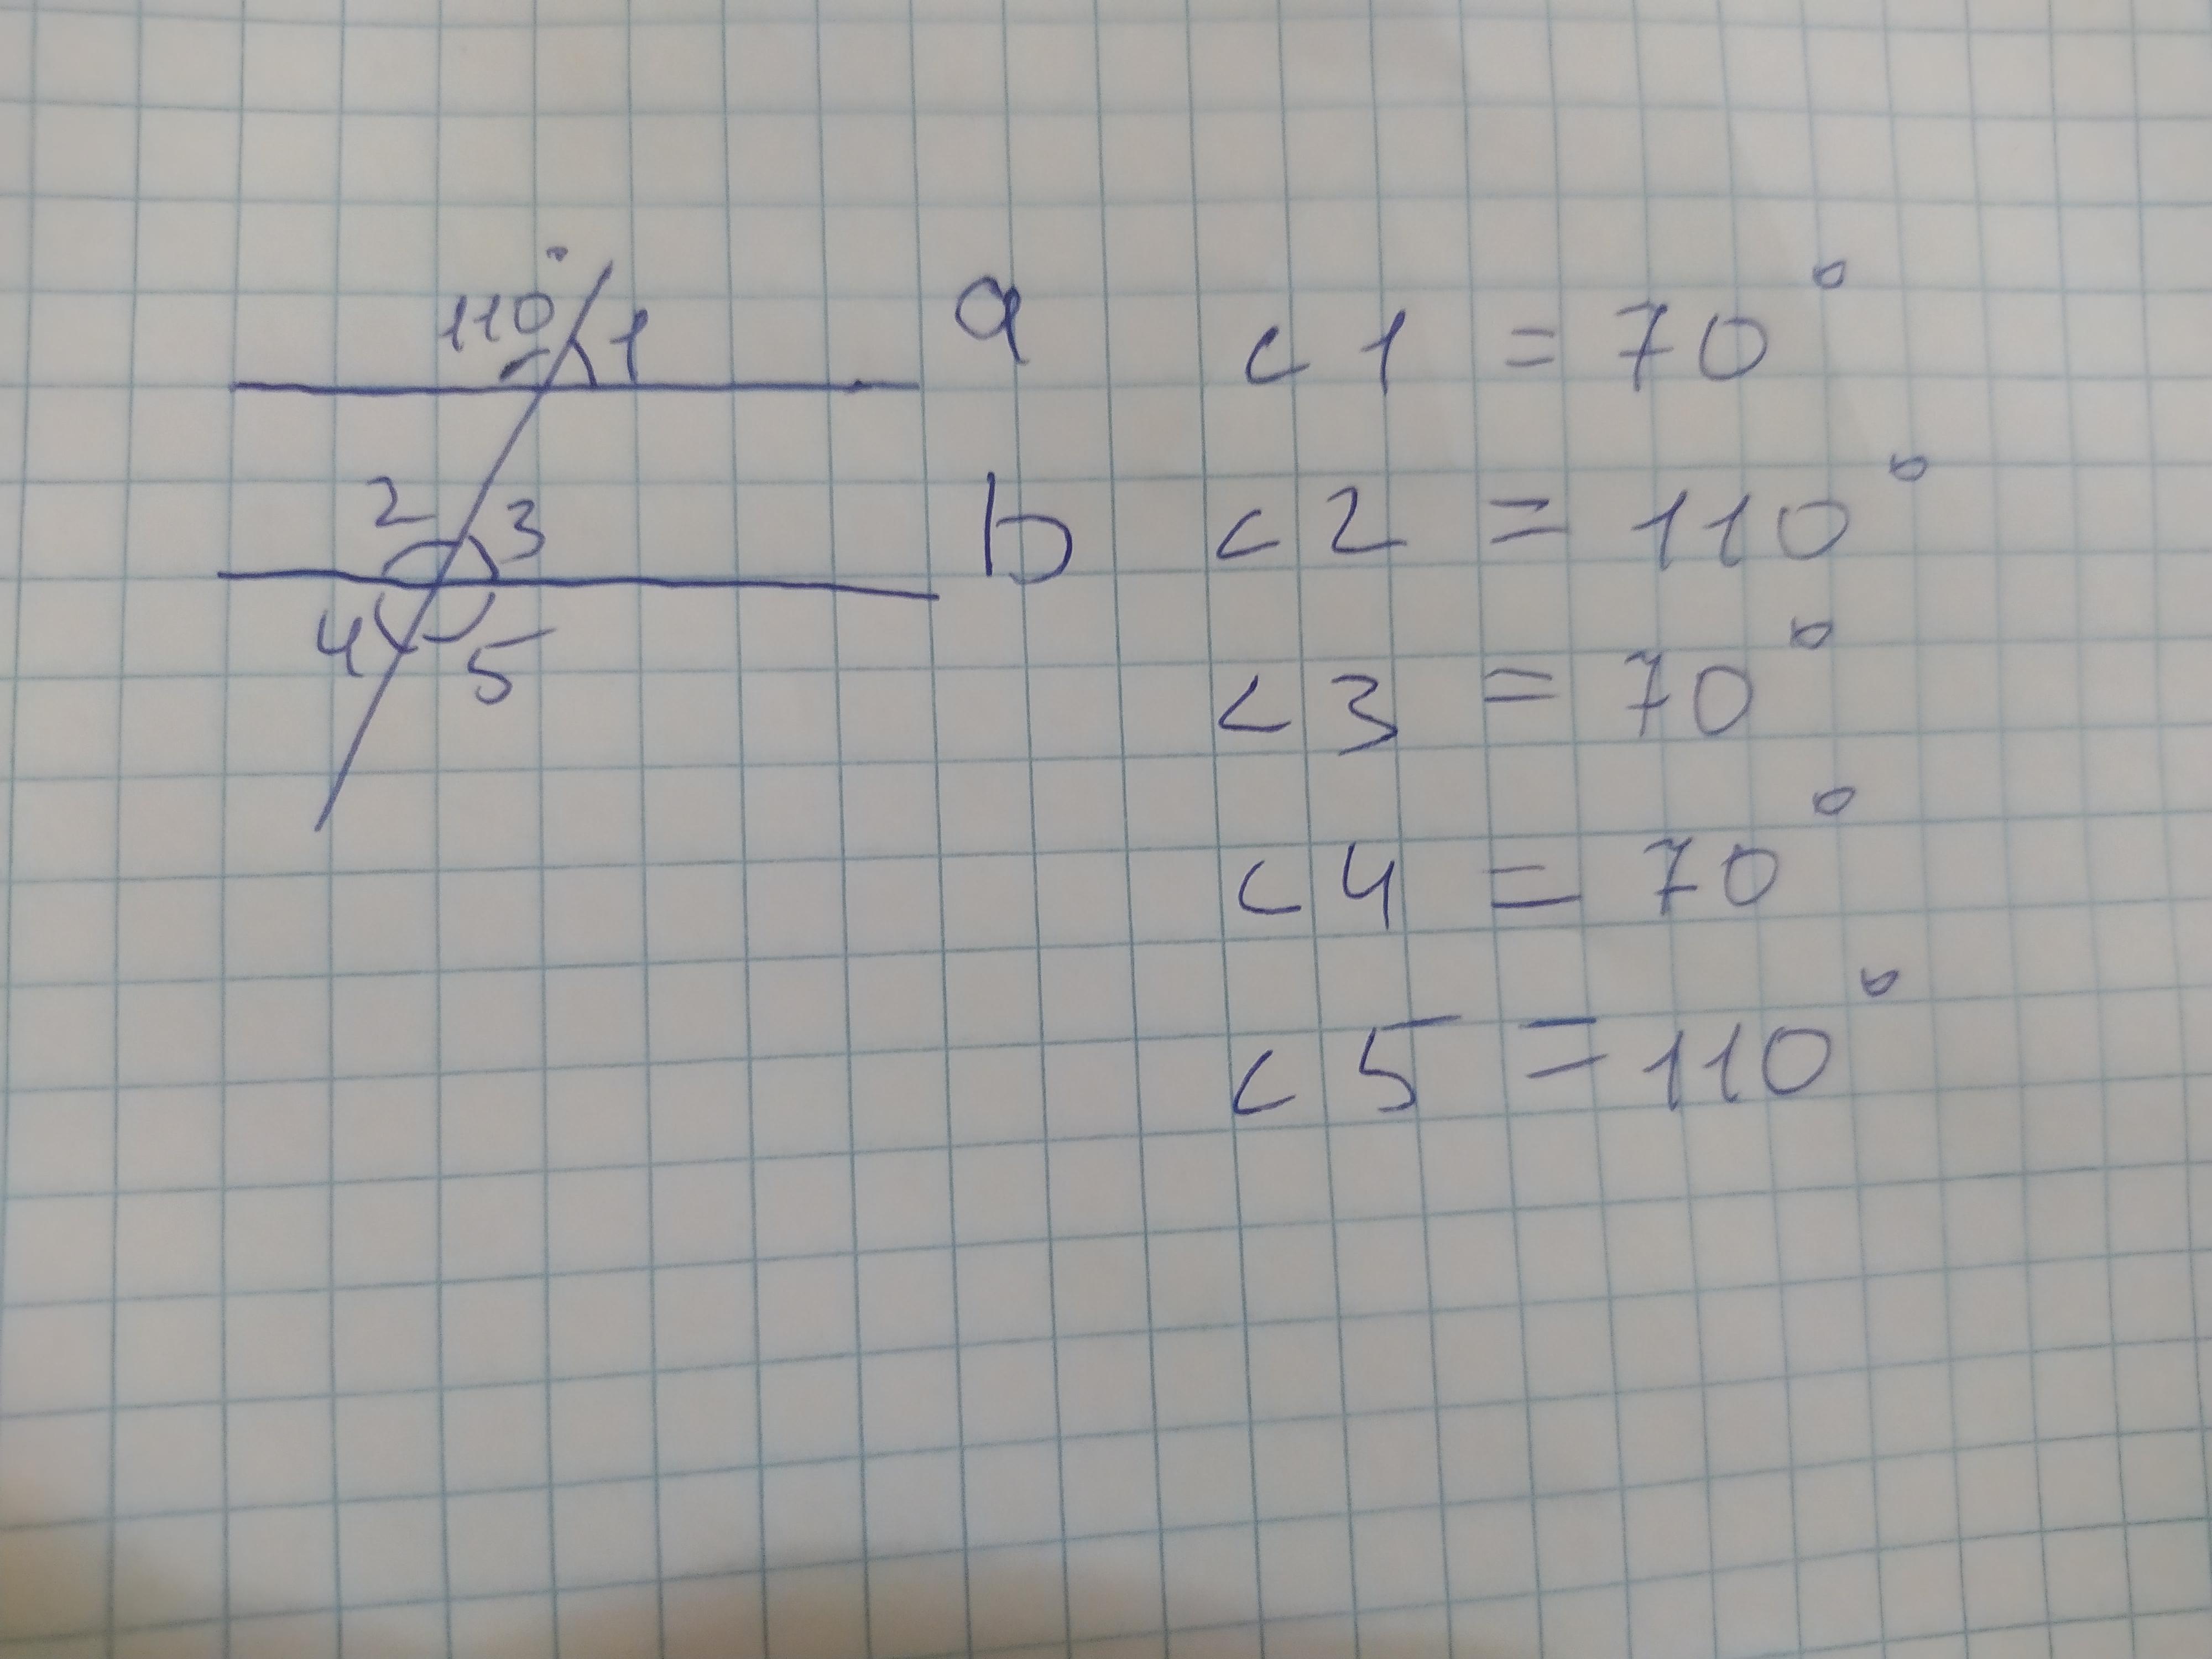 110° 1 a
2 3 b
4 5
<1 = 70°
<2 = 110°
<3 = 70°
<4 = 70°
<5 = 110°